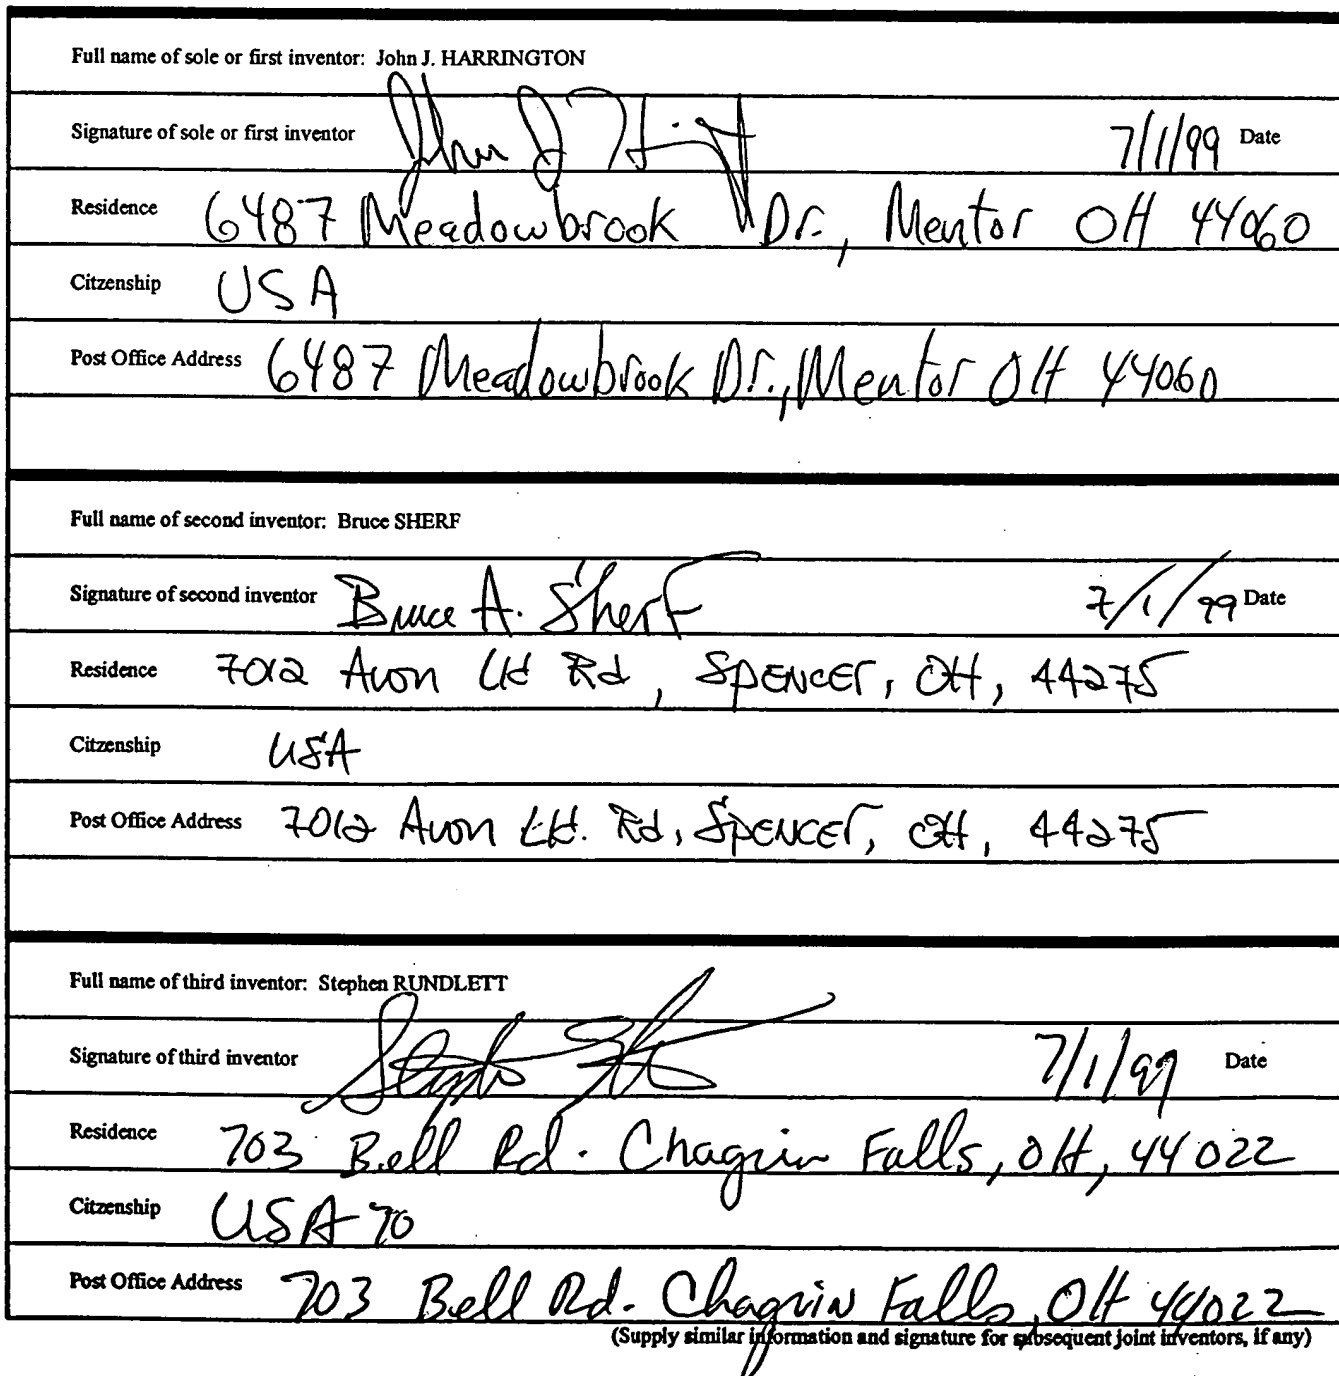 Full name of sole or first inventor: John J. HARRINGTON
Signature of sole or first inventor John J 7/1/99 Date
Residence 6487 Meadowbrook Dr., Mentor OH 44060
Citzenship USA
Post Office Address 6487 Meadowbrook Dr., Mentor OH 44060
Full name of second inventor: Bruce SHERF
Signature of second inventor Bruce A. Sherf 7/1/99 Date
Residence 7012 Avon Rd, SPENCEr, OH, 44275
Citzenship USA
Post Office Address 7012 Avon Rd, SPENCEr, OH, 44275
Full name of third inventor: Stephen RUNDLETT
Signature of third inventor 7/1/99 Date
Residence 703 Bell Rd. Chagrin Falls, OH, 44022
Citzenship USA 70
Post Office Address 703 Bell Rd. Chagrin Falls, OH 44022
(Supply similar information and signature for subsequent joint inventors, if any)